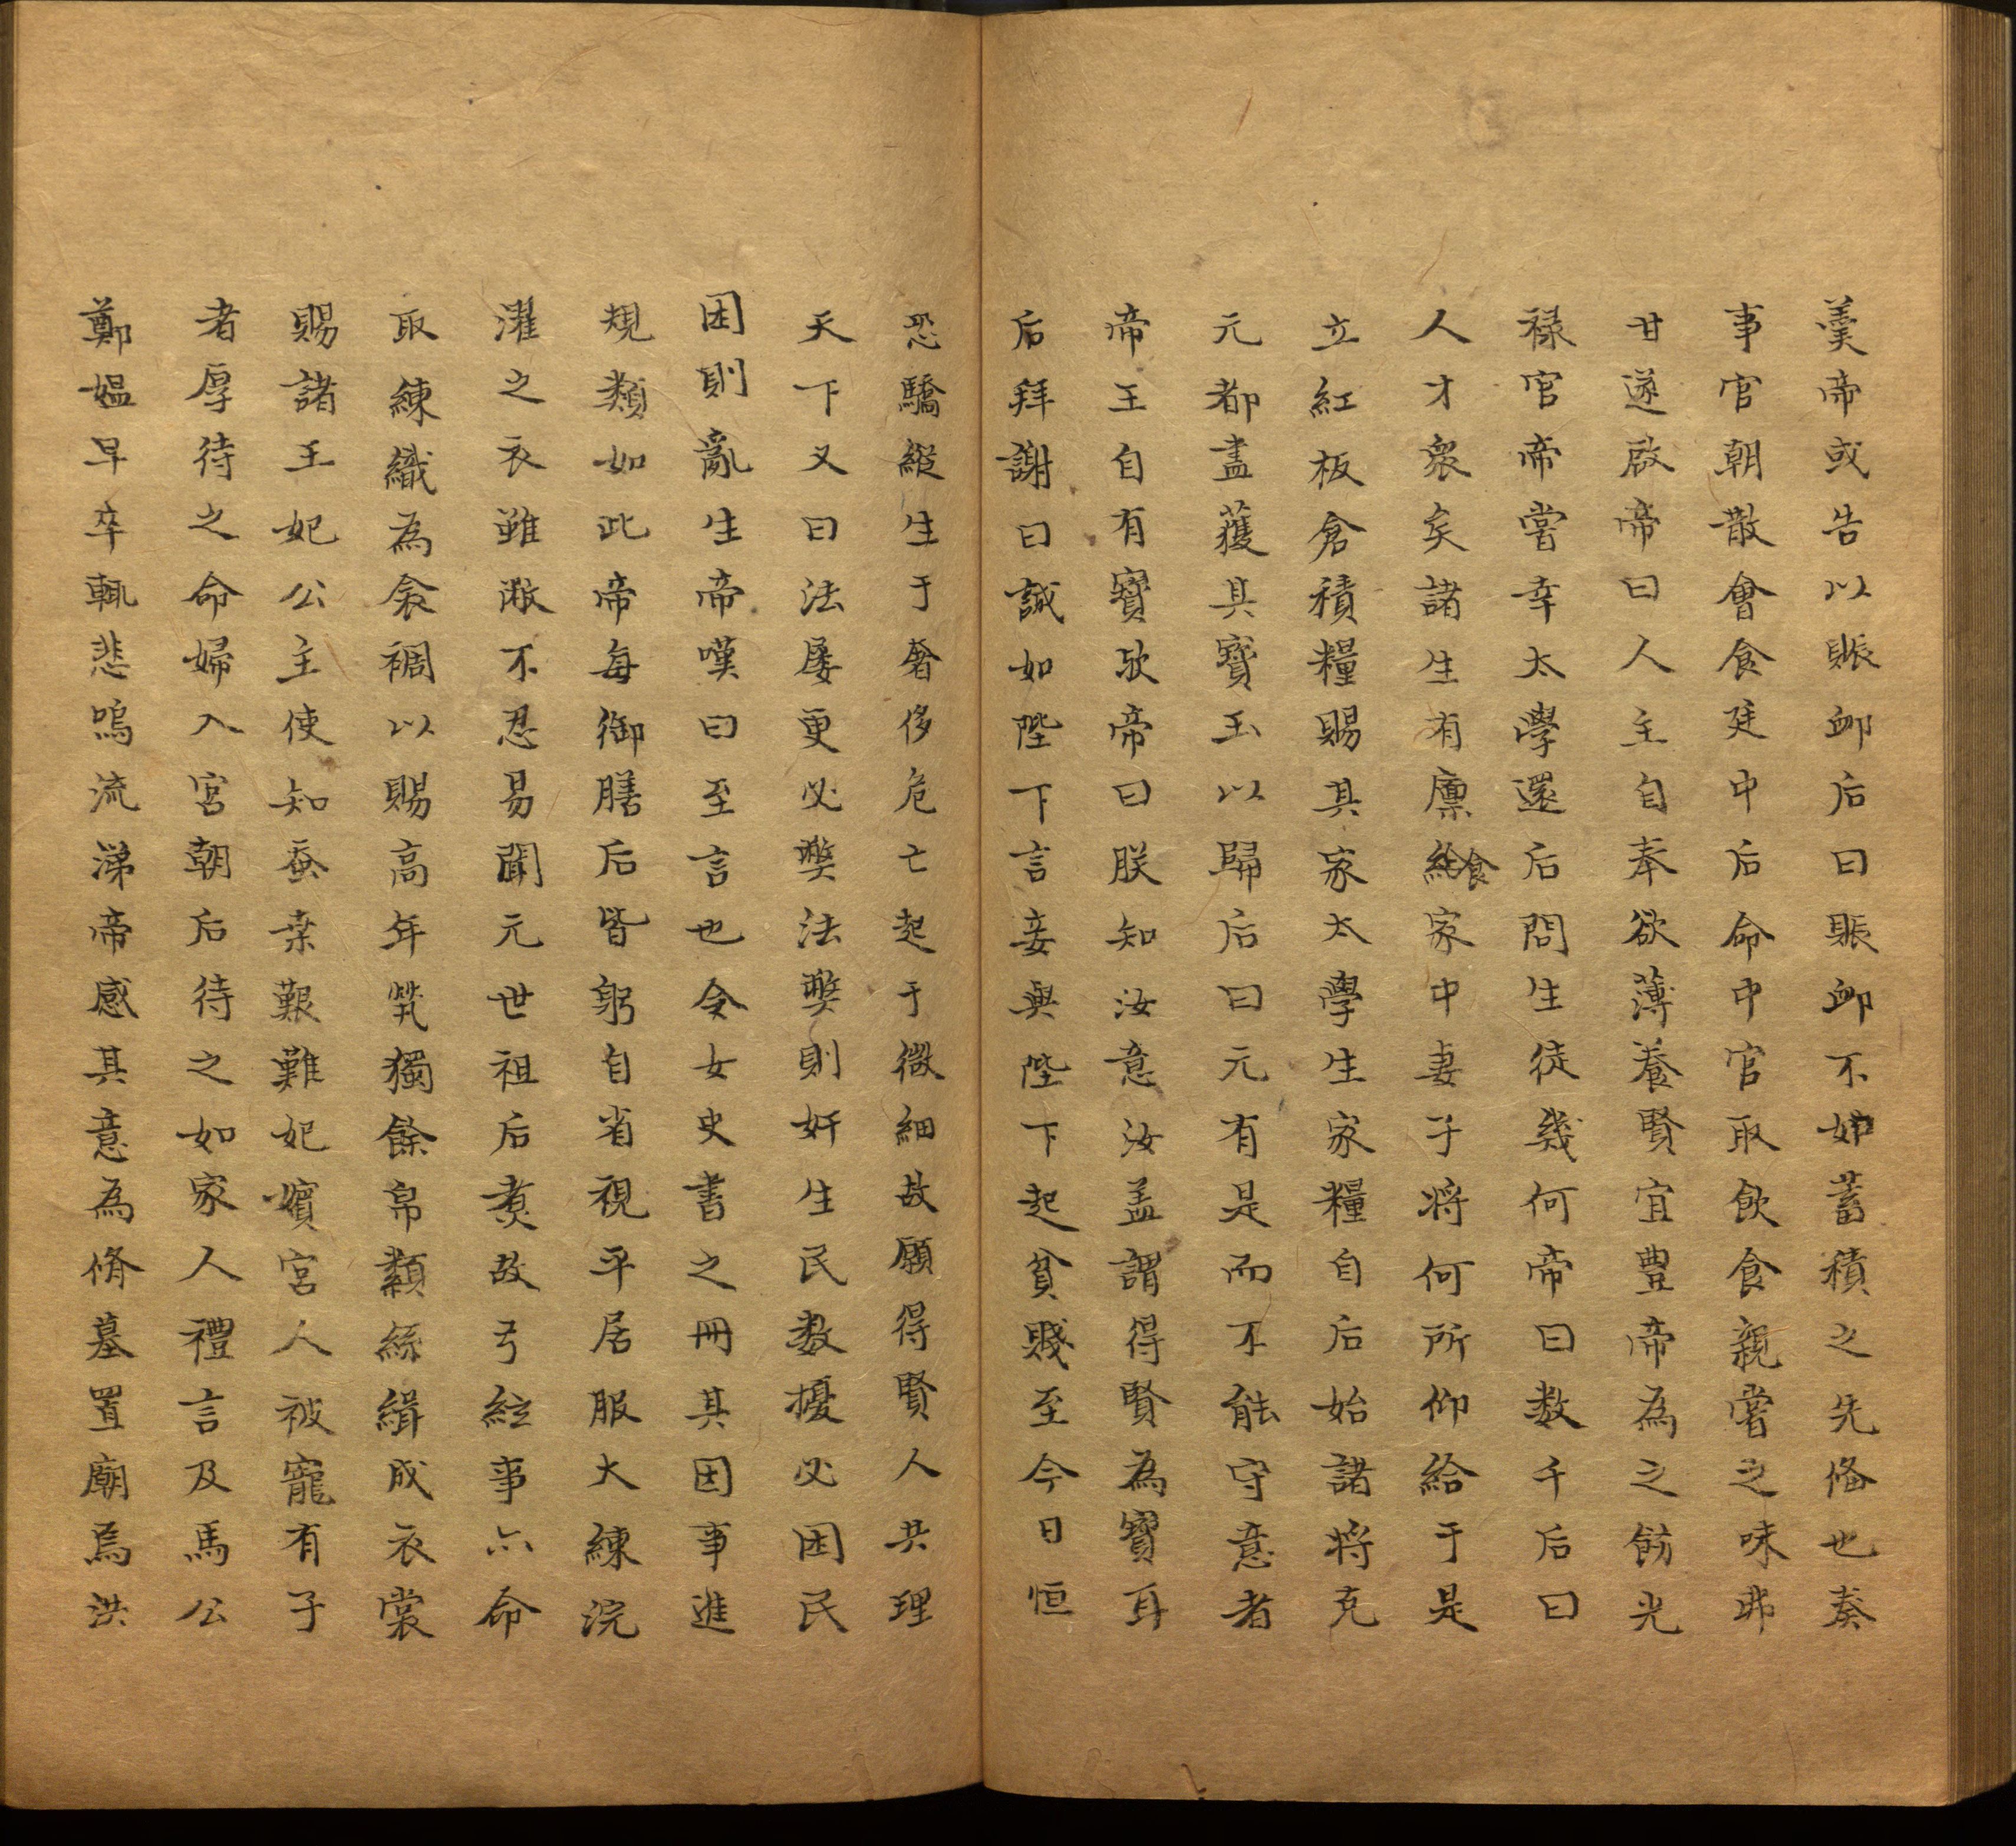 羹帝或告以賑卹后曰賑卹不如蓄積之先俻也奏
事官朝散會食廷中后命中官取飲食親嘗之味弗
甘遂啟帝曰人主自奉欲薄養賢宜豊帝為之飭光
禄官帝嘗幸太學還后問生徒幾何帝曰数千后曰
人才衆矣諸生有廪食給家中妻子将何所仰給于是
立紅板倉積糧賜其家太學生家糧自后始諸将克
元都盡獲其寳玉以歸后曰元有是而不能守意者
帝王自有寳欤帝曰朕知汝意汝盖謂得賢為寳耳
后拜謝曰誠如陛下言妾與陛下起貧賤至今日恒
恐驕縱生于奢侈危亡起于微細故願得賢人共理
天下又曰法屡更必獘法獘則奸生民数擾必困民
困則亂生帝嘆曰至言也令女史書之冊其因事進
規類如此帝每御膳后皆躬自省視平居服大練浣
濯之衣雖敝不忍易聞元世祖后煑故弓絃事亦命
取練織為衾裯以賜高年煢獨餘帛纇絲緝成衣裳
賜諸王妃公主使知蚕桒艱難妃嬪宮人被寵有子
者厚待之命婦入宮朝后待之如家人禮言及馬公
鄭媼早卒輒悲嗚流涕帝感其意為脩墓置廟焉洪